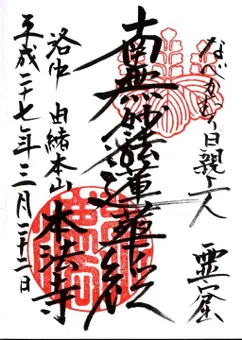 なべかむり日親上人
霊窟
南無妙法蓮華経
洛中 由緒本山 本法寺
平成二十七年三月二十二日